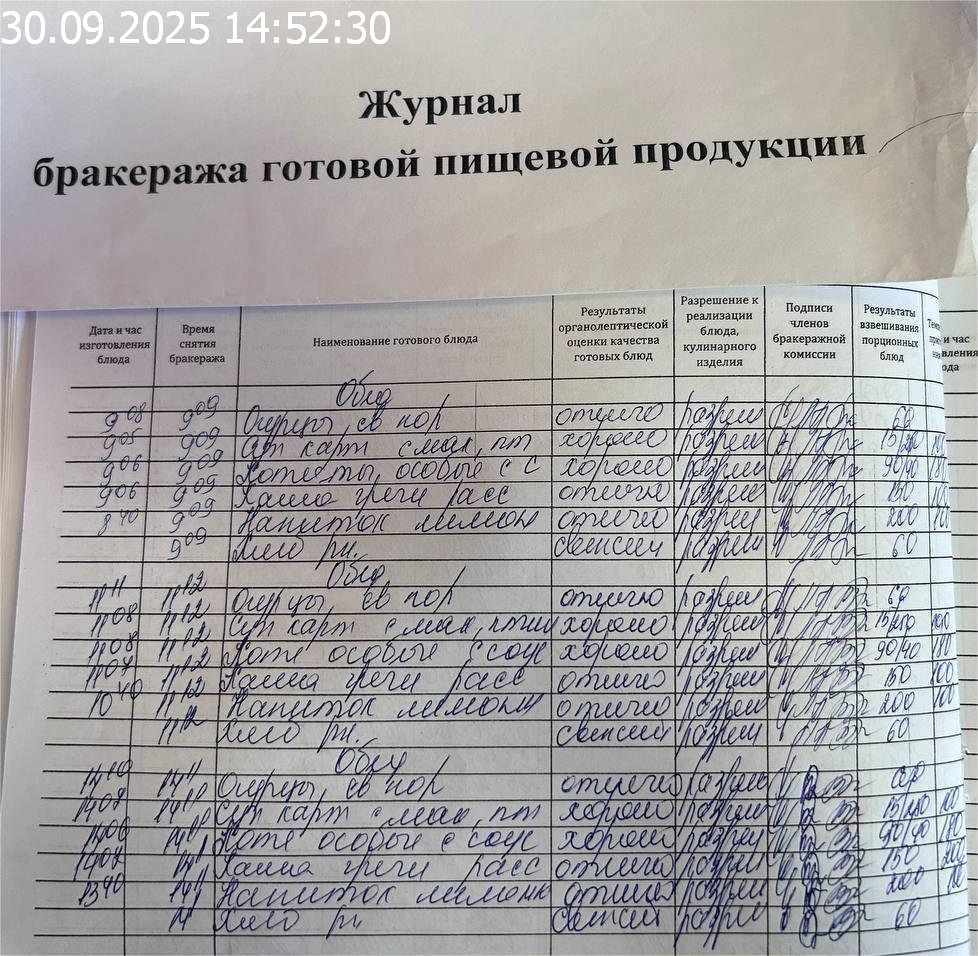 30.09.2025 14:52:30
Журнал
бракеража готовой пищевой продукции
Дата и час изготовления блюда Время снятия бракеража Наименование готового блюда Результаты органолептической оценки качества готовых блюд Разрешение к реализации блюда, кулинарного изделия Подписи членов бракеражной комиссии Результаты взвешивания порционных блюд
Обед
9 08 9 09 Огурцы св пор отлично разреш 60
9 05 9 09 Суп карт с мак, пт хорошо разреш
9 06 9 09 Котлеты особые с с хорошо разреш 90/40
9 06 9 09 Каша греч расс отлично разреш 150
8 40 9 09 Напиток лимон отлично разреш 200
9 09 Хлеб рж. свежий разреш 60
Обед
11 11 11 12 Огурцы св пор отлично разреш 60
11 08 11 12 Суп карт с мак, птиц хорошо разреш
11 08 11 12 Котл особые с соус хорошо разреш 90/40
11 07 11 12 Каша греч расс отлично разреш 150
10 40 11 12 Напиток лимонн отлично разреш 200
11 12 Хлеб рж. свежий разреш 60
Обед
14 10 14 11 Огурцы св пор отлично разреш 60
14 07 14 11 Суп карт с мак, пт хорошо разреш
14 06 14 11 Котл особые с соус хорошо разреш 90/40
14 07 14 11 Каша греч расс отлично разреш 150
13 40 14 11 Напиток лимонн отлично разреш 200
Хлеб рж свежий разреш 60